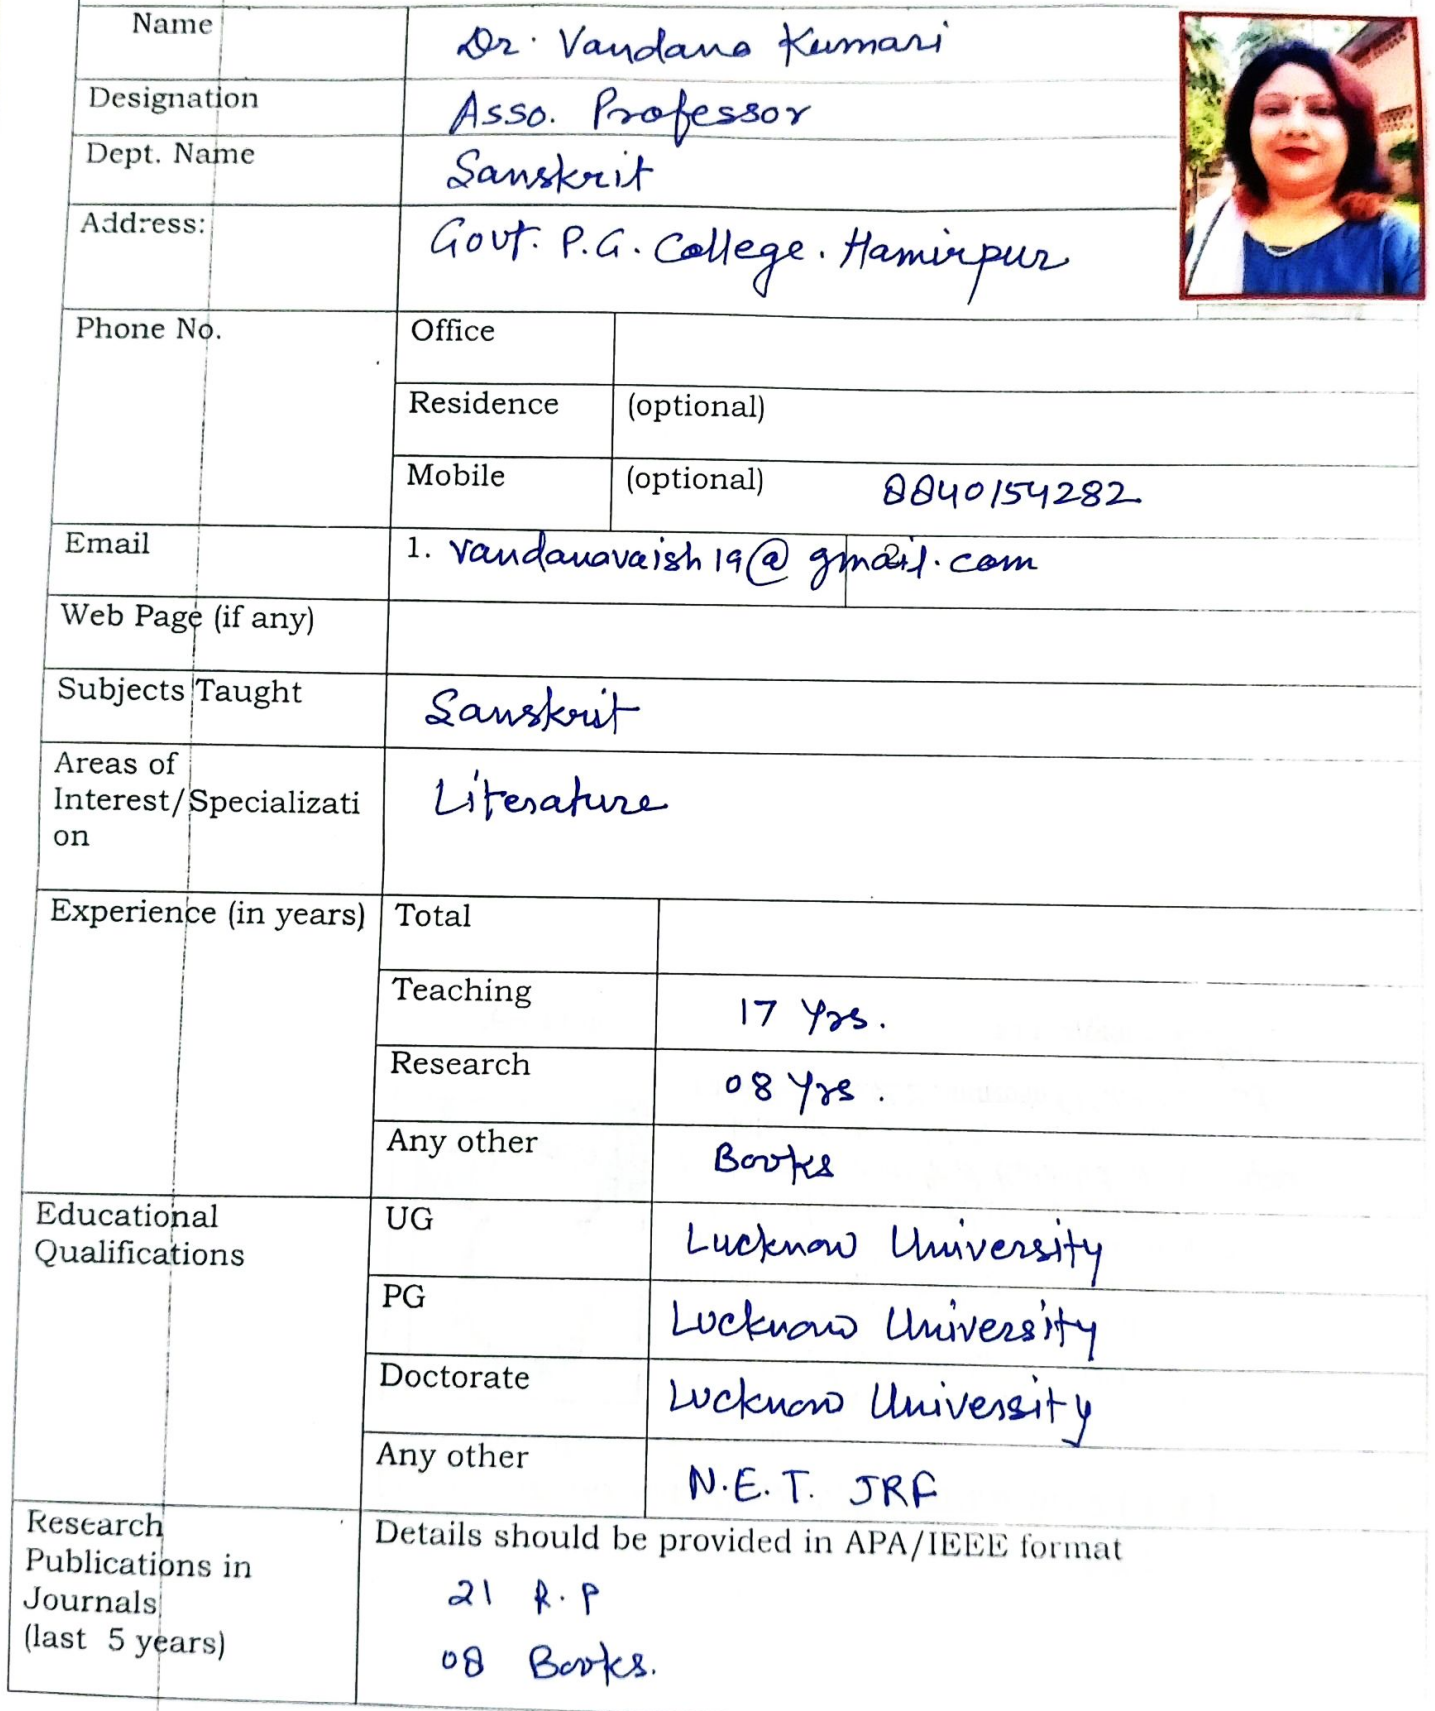 Name Dr. Vandana Kumari
Designation Asso. Professor
Dept. Name Sanskrit
Address: Govt. P.G. College. Hamirpur
Phone No. Office
Residence (optional)
Mobile (optional) 8840154282
Email 1. vandanavaish19@gmail.com
Web Page (if any)
Subjects Taught Sanskrit
Areas of
Interest/Specializati
on
Literature
Experience (in years) Total
Teaching 17 Yrs.
Research 08 Yrs.
Any other Books
Educational
Qualifications
UG Lucknow University
PG Lucknow University
Doctorate Lucknow University
Any other N.E.T. JRF
Research
Publications in
Journals
(last 5 years)
Details should be provided in APA/IEEE format
21 R.P
08 Books.